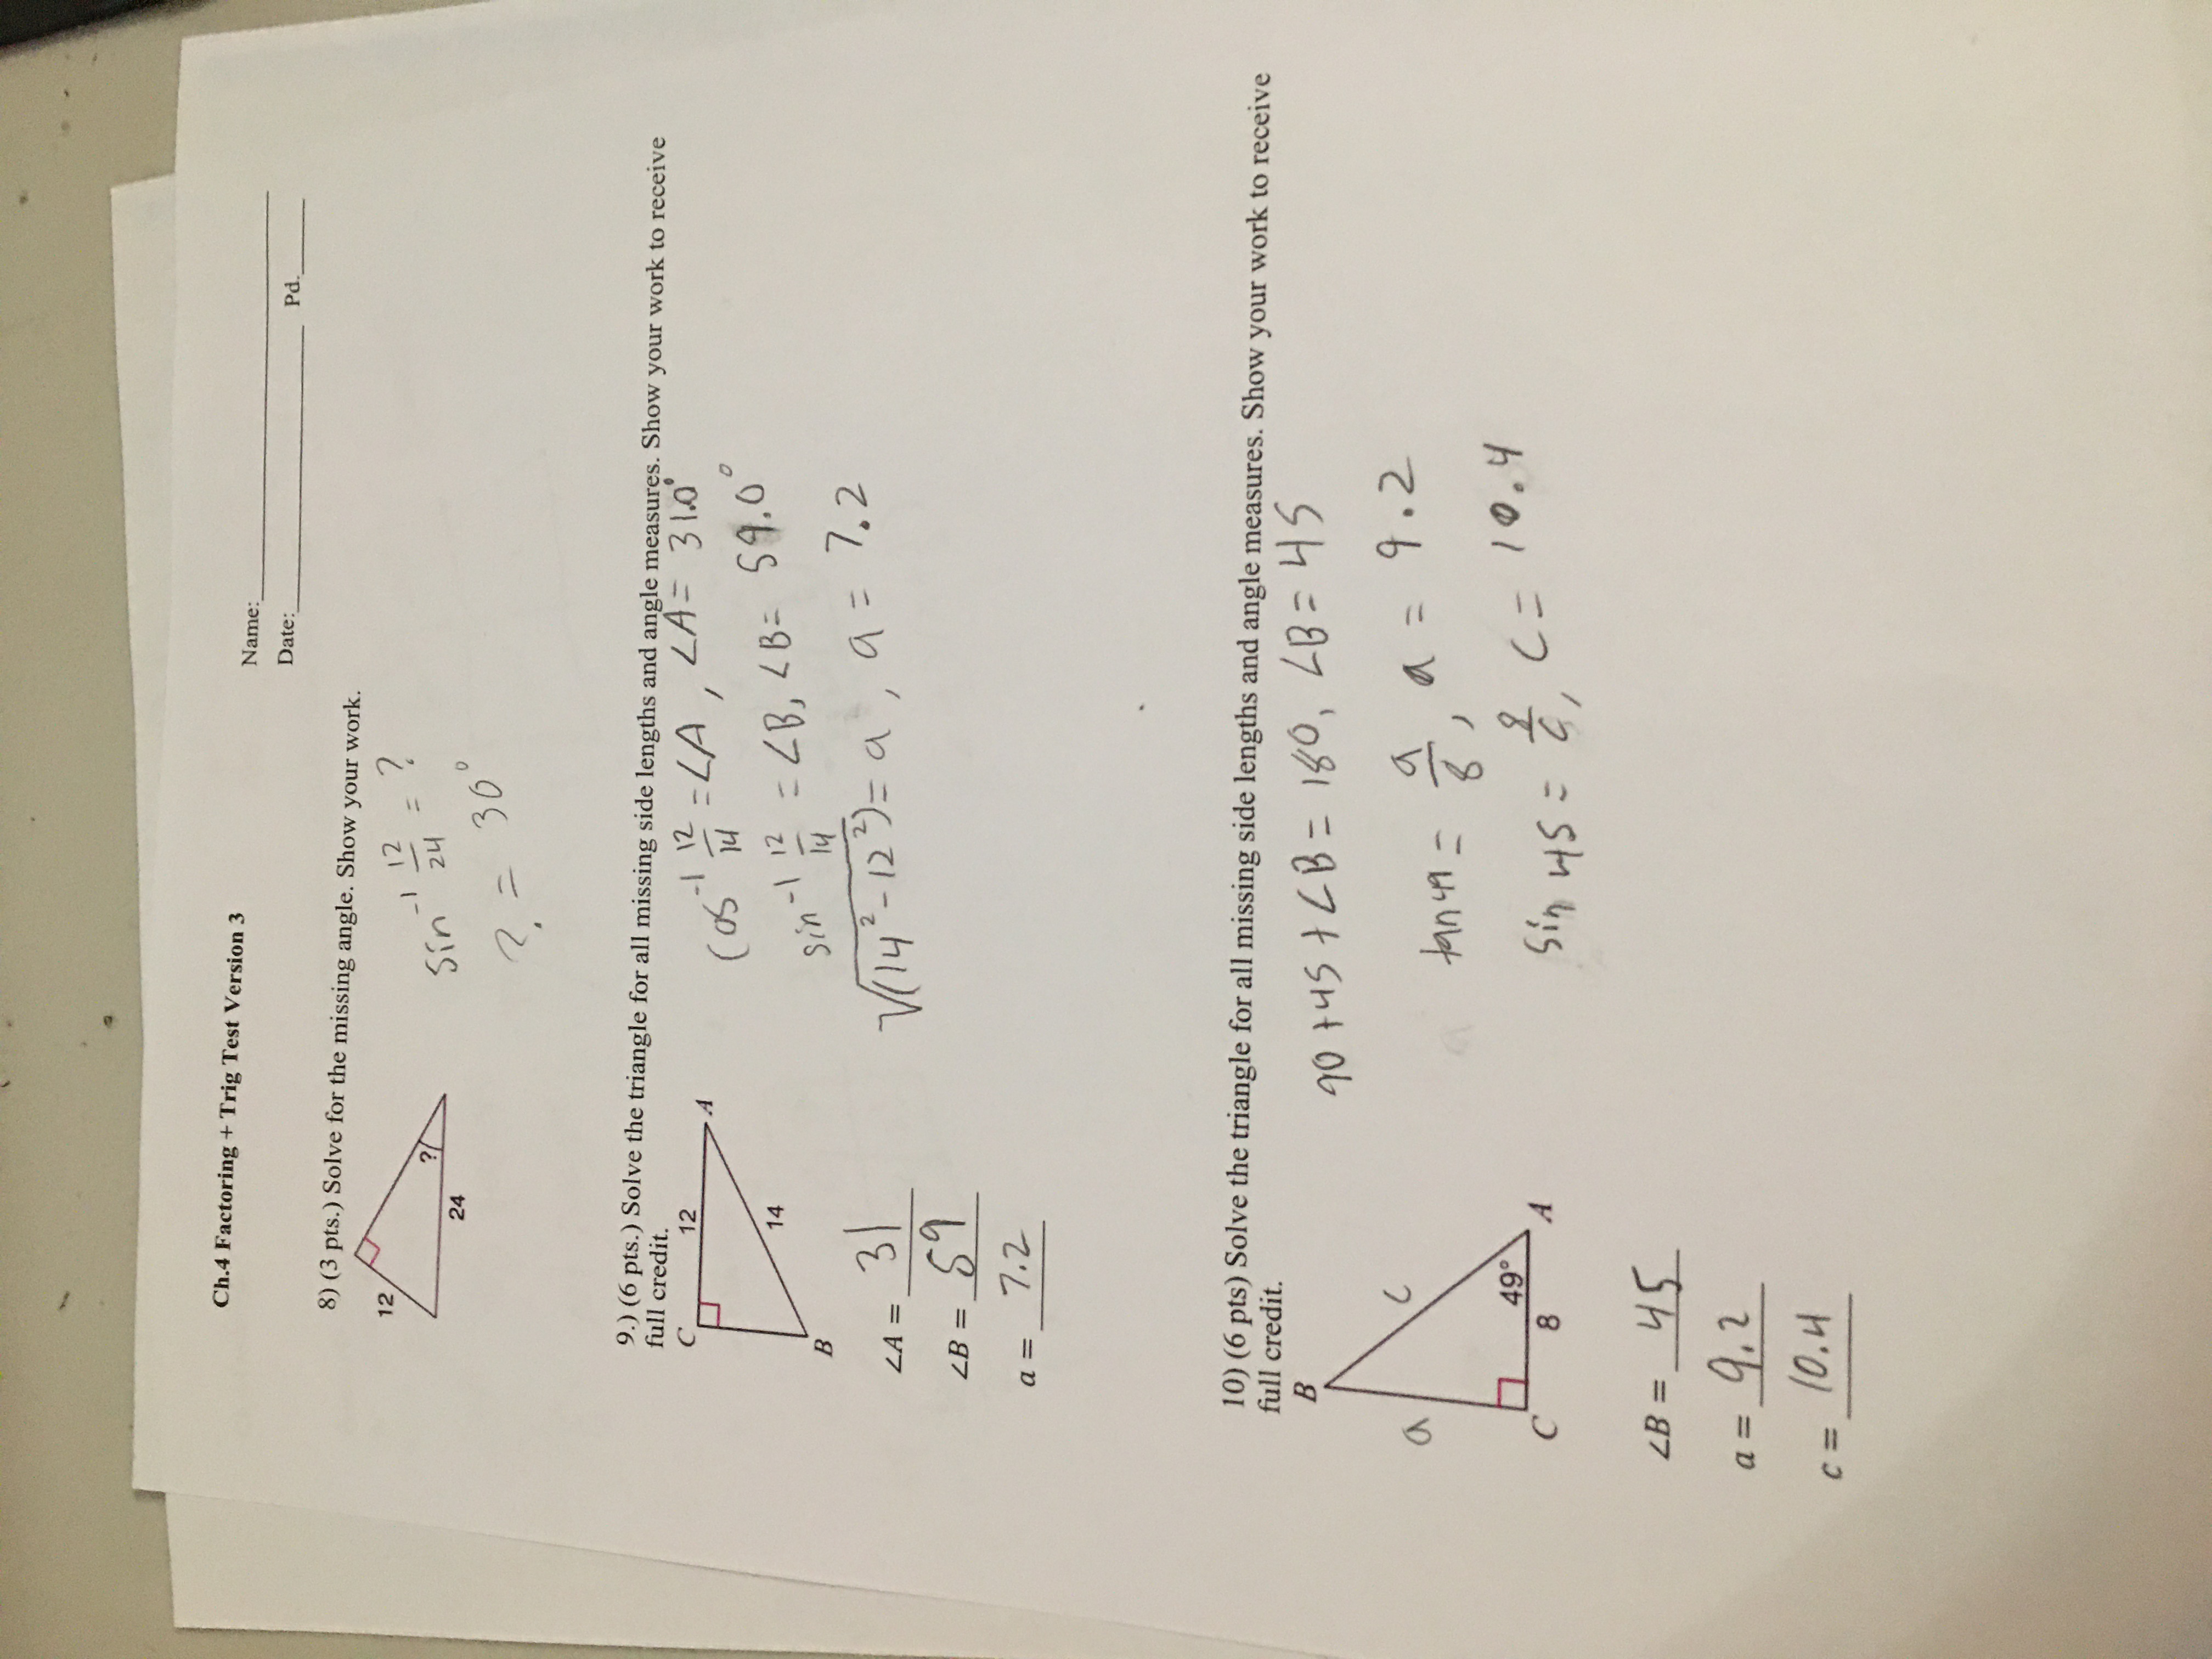 Ch.4 Factoring + Trig Test Version 3
Name:
Date: Pd.
8) (3 pts.) Solve for the missing angle. Show your work.
12
?
24
sin⁻¹ 12/24 = ?
? = 30°
9.) (6 pts.) Solve the triangle for all missing side lengths and angle measures. Show your work to receive
full credit.
C 12 A
14
B
cos⁻¹ 12/14 = ∠A, ∠A = 31.0°
sin⁻¹ 12/14 = ∠B, ∠B = 59.0°
√(14² - 12²) = a, a = 7.2
∠A = 31
∠B = 59
a = 7.2
10) (6 pts) Solve the triangle for all missing side lengths and angle measures. Show your work to receive
full credit.
B
a c
49°
C 8 A
90 + 45 + ∠B = 180, ∠B = 45
tan 49 = a/8, a = 9.2
sin 45 = 8/c, c = 10.4
∠B = 45
a = 9.2
c = 10.4